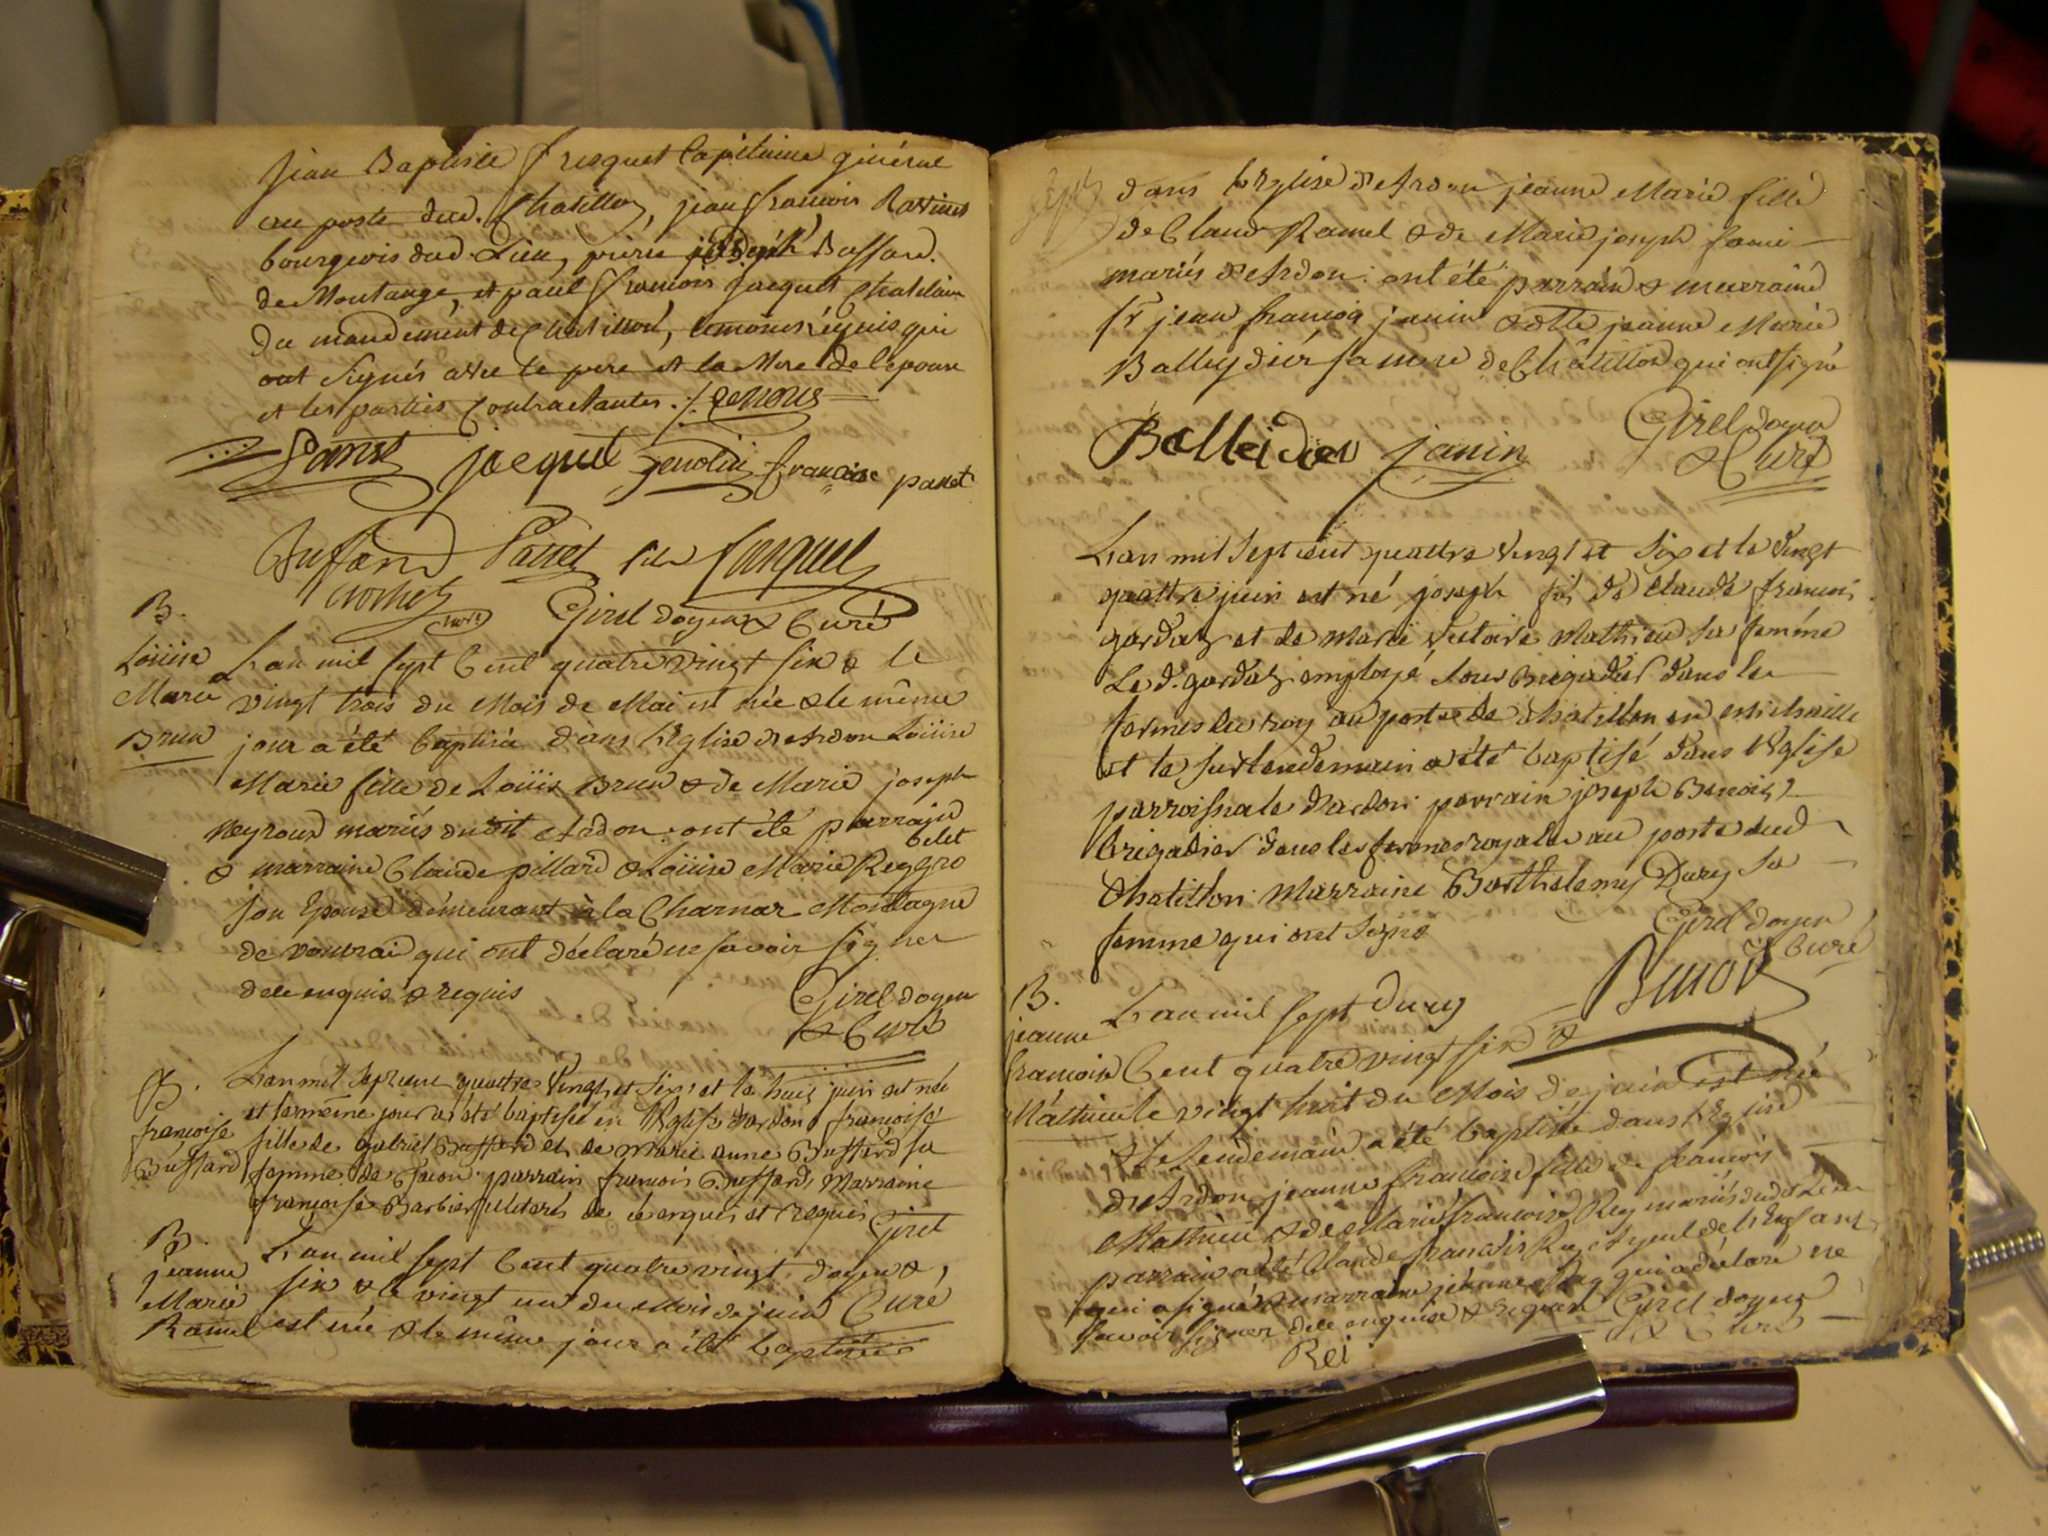 Jean Baptiste Fresquet Capitaine général
au poste dud. Chatillon, jean françois Ravinet
bourgeois dud. Lieu, pierre joseph Buffard
de Montange, et paul françois Jacquet Chatelain
du mandement de Chatillon, temoins réquis qui
ont signés avec le pere et la Mere de l'epouse
et les parties Contractantes
Panset jacquet françoise panset
Buffard Panset
Crochet Girel doyen & Curé
B.
Loüise
Marie
Brun
L'an mil sept Cent quatre vingt six & le
vingt trois du Mois de Mai est née & le même
jour a été baptisée dans l'Eglise d'Ardon Loüise
Marie fille de Loüis Brun & de Marie joseph
Neyroud mariés dudit Ardon ont été parrain
& marraine Claude pillard & Loüise Marie
son Epouse demeurant à la Charnaz Montagne
de vouvrai qui ont déclaré ne savoir signer
de ce enquis & requis Girel doyen
& Curé
B.
françoise
Buffard
L'an mil sept cent quattre vingt et six et le huit juin est née
et le même jour a été baptisée en l'Eglise d'ardon françoise
fille de gabriel Buffard et de Marie anne Buffard sa
femme de Ocon parrain françois Buffard Marraine
françoise Barbier illiterés de ce enquis et requis Girel
doyen &
Curé
B.
jeanne
Marie
Ramel
L'an mil sept Cent quatre vingt
six & le vingt un du Mois de juin
est née & le même jour a été baptisée
dans l'Eglise d'Ardon jeanne Marie fille
de Claud Ramel & de Marie joseph
mariés d'Ardon ont été parrain & marraine
Sr jean françois janin & dlle jeanne Marie
Balleydier sa mere de Châtillon qui ont signé
Balleidier janin Girel doyen
& Curé
L'an mil sept cent quattre vingt et six et le vingt
quattre juin est né joseph fils de Claude françois
gardaz et de Marie victoire Mathieu sa femme
Le d. gardaz employé sous Brigadier dans les
fermes du roy au poste de Chatillon en Michaille
et le surlendemain a été baptisé dans l'Eglise
parroissiale d'ardon parrain joseph Benoit
brigadier dans les fermes royales au poste dud
Chatillon Marraine Barthelemy Durey sa
femme qui ont signé Girel doyen
& Curé
Benoit
Durey
B.
jeanne
françoise
Mathieu
L'an mil sept
Cent quatre vingt six &
le vingt huit du Mois de juin est née
& le lendemain a été baptisée dans l'Eglise
d'Ardon jeanne françoise fille de françois
Mathieu & de Marie françoise Rey mariés dudit Lieu
parrain a été Claude françois Rey Ayeul de l'Enfant
qui a signé & marraine jeanne Rey qui a déclaré ne
savoir signer de ce enquise & requise Girel doyen
& Curé
Rei